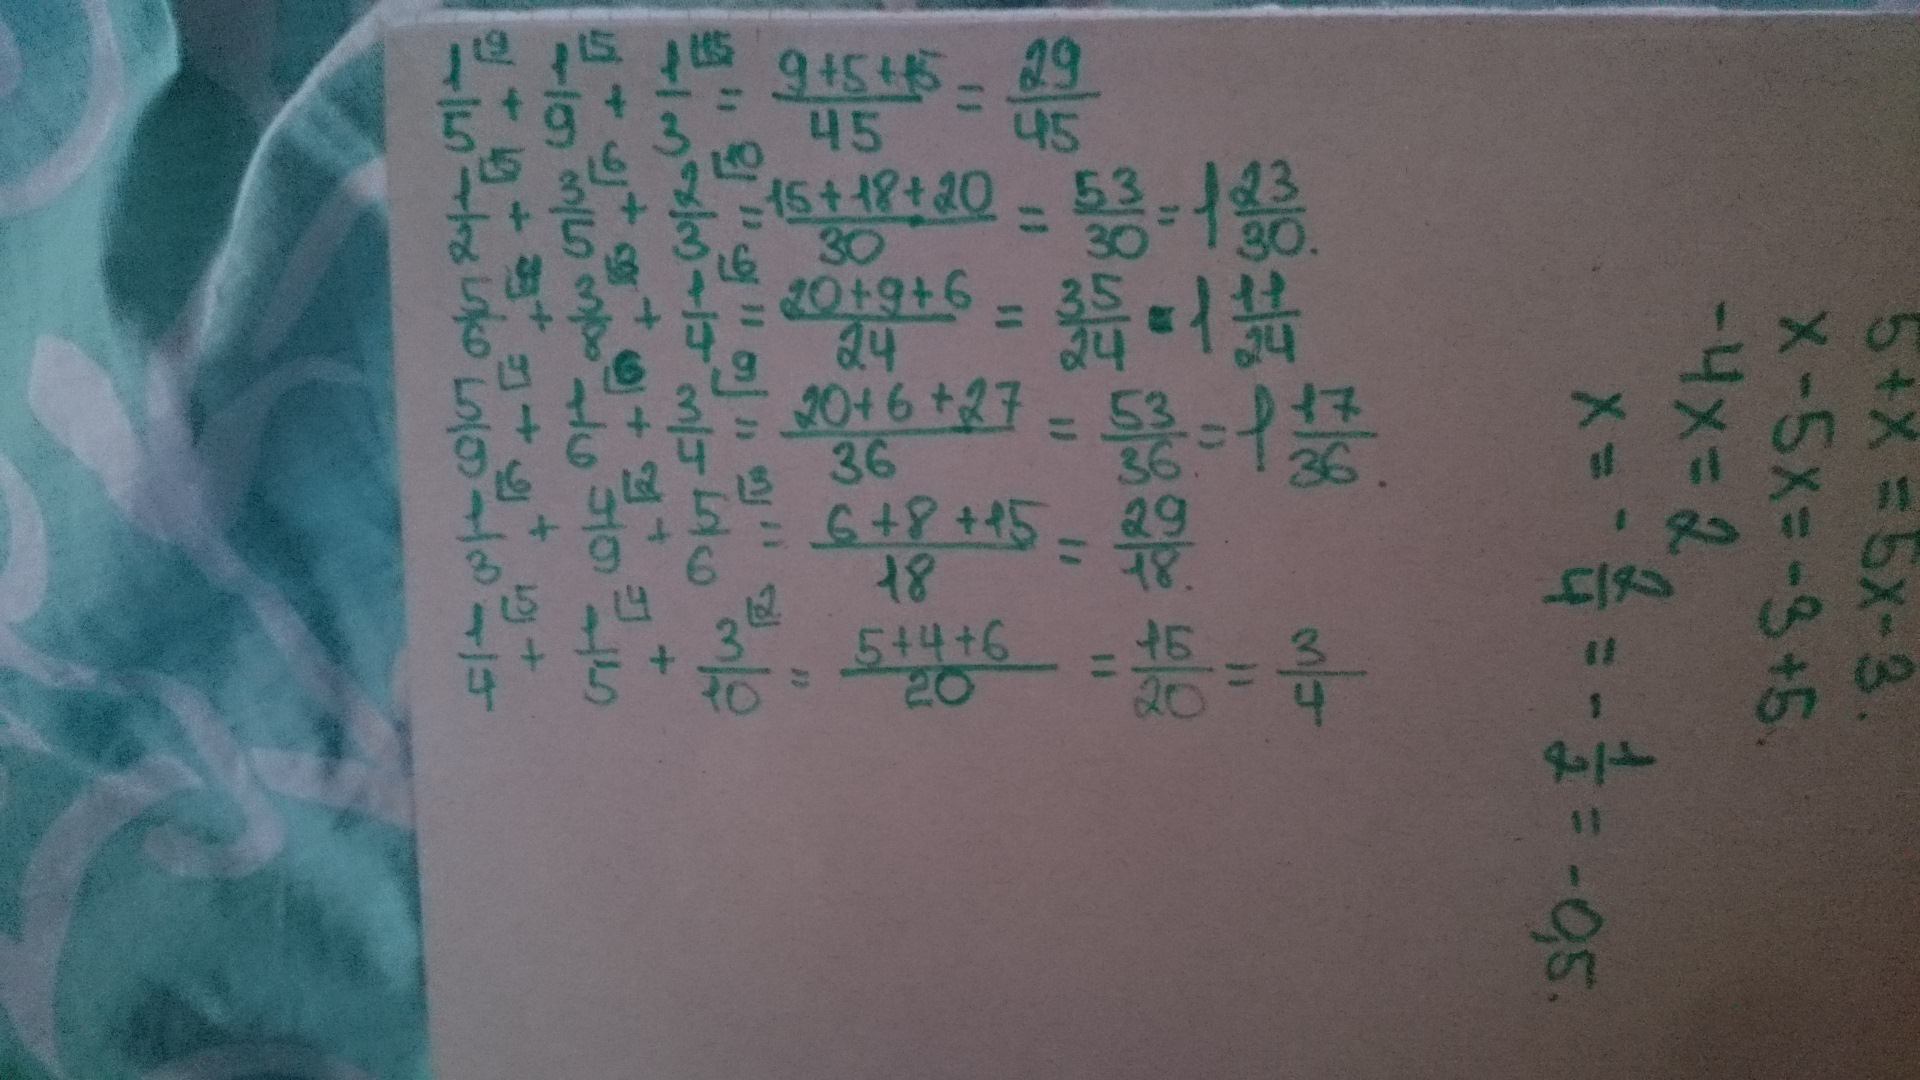 1/5 ⌊9 + 1/9 ⌊5 + 1/3 ⌊15 = (9+5+15)/45 = 29/45
1/2 ⌊15 + 3/5 ⌊6 + 2/3 ⌊10 = (15+18+20)/30 = 53/30 = 1 23/30.
5/6 ⌊4 + 3/8 ⌊3 + 1/4 ⌊6 = (20+9+6)/24 = 35/24 = 1 11/24
5/9 ⌊4 + 1/6 ⌊6 + 3/4 ⌊9 = (20+6+27)/36 = 53/36 = 1 17/36.
1/3 ⌊6 + 4/9 ⌊2 + 5/6 ⌊3 = (6+8+15)/18 = 29/18.
1/4 ⌊5 + 1/5 ⌊4 + 3/10 ⌊2 = (5+4+6)/20 = 15/20 = 3/4
5+x=5x-3.
x-5x=-3+5.
-4x=2
x=-2/4=-1/2=-0,5.